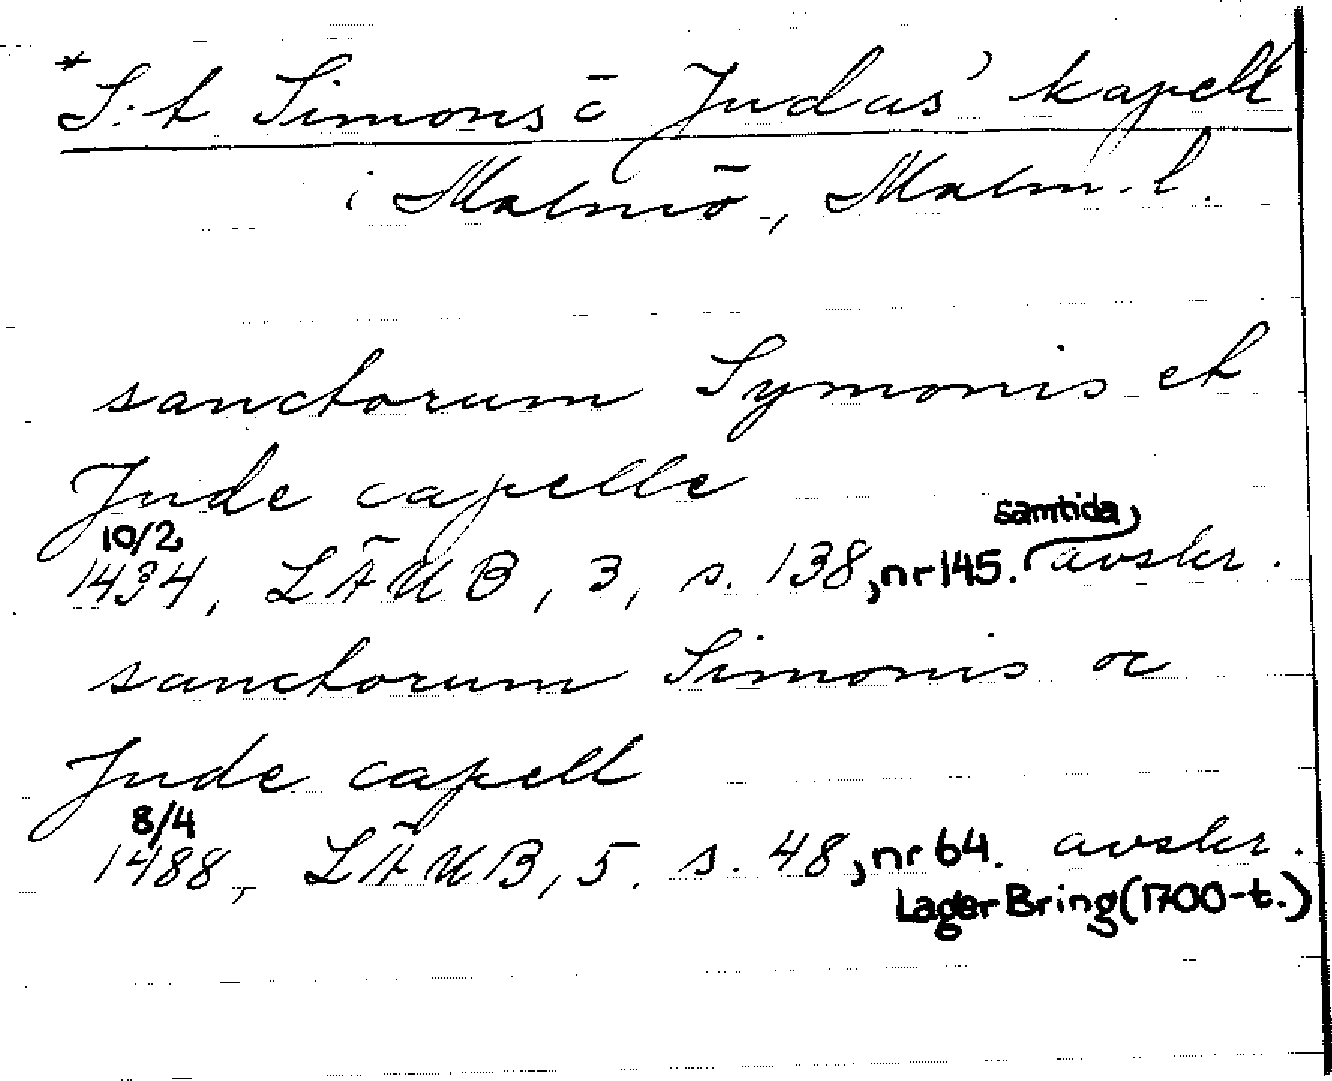 *S:t Simons o Judas' kapell
i Malmö, Malm. l.
sanctorum Symonis et
Jude capelle
10/2
1434, LÄUB, 3, s. 138, nr 145. samtida avskr.
sanctorum Simonis oc
Jude capell
8/4
1488, LÄUB, 5. s. 48, nr 64. avskr.
LagerBring (1700-t.)